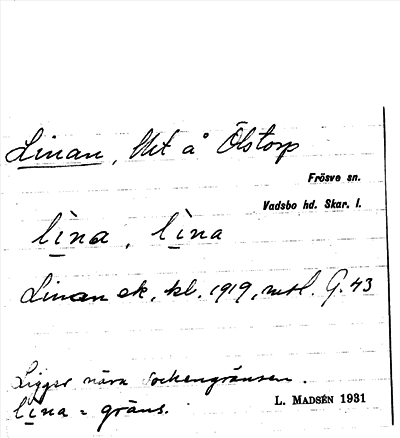 Linan, Ht å Ölstorp
Frösve sn.
Vadsbo hd. Skar. l.
lina, lina
Linan ek. kl. 1919, mtl. G. 43
Ligger nära sockengränsen.
lina = gräns.
L. MADSÉN 1931